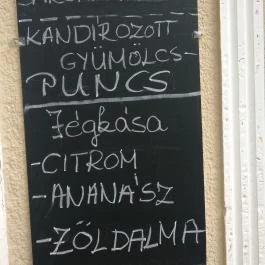 KANDÍROZOTT
GYÜMÖLCS-
PUNCS
Jégkása
-CITROM
-ANANÁSZ
-ZÖLDALMA